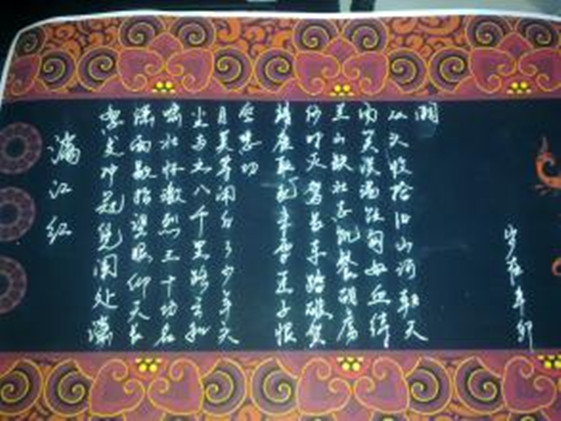 满江红
怒发冲冠凭阑处潇
潇雨歇抬望眼仰天长
啸壮怀激烈三十功名
尘与土八千里路云和
月莫等闲白了少年头
空悲切
靖康耻犹未雪臣子恨
何时灭驾长车踏破贺
兰山缺壮志饥餐胡虏
肉笑谈渴饮匈奴血待
从头收拾旧山河朝天
阙
岁在辛卯